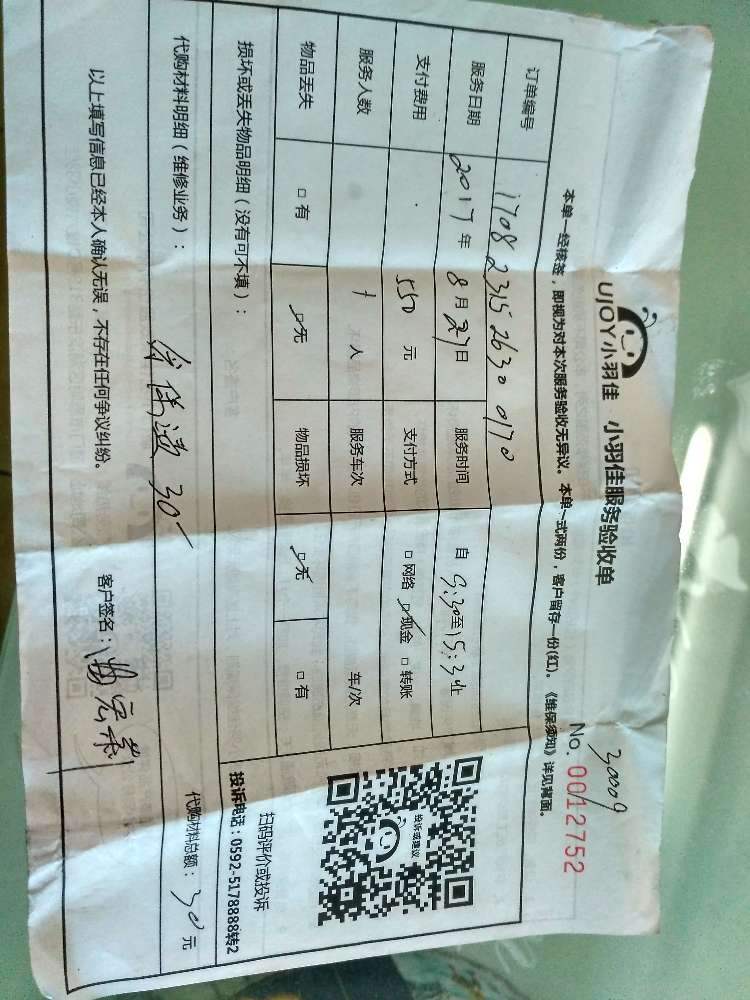 30009
UJOY小羽佳 小羽佳服务验收单
No. 0012752
本单一经核签，即视为对本次服务验收无异议。本单一式两份，客户留存一份(红)。《维保须知》详见背面。
订单编号 1708 2315 2630 0170
服务日期 2017年8月27日 服务时间 自9:30至15:30
支付费用 550元 支付方式 □网络 ☑现金 □转账
服务人数 1人 服务车次 车/次
物品丢失 □有 ☑无 物品损坏 ☑无 □有
投诉或建议
扫码评价或投诉
投诉电话：0592-5178888转2
损坏或丢失物品明细（没有可不填）：
代购材料明细（维修业务）： 30 代购材料总额：30元
以上填写信息已经本人确认无误，不存在任何争议纠纷。 客户签名：